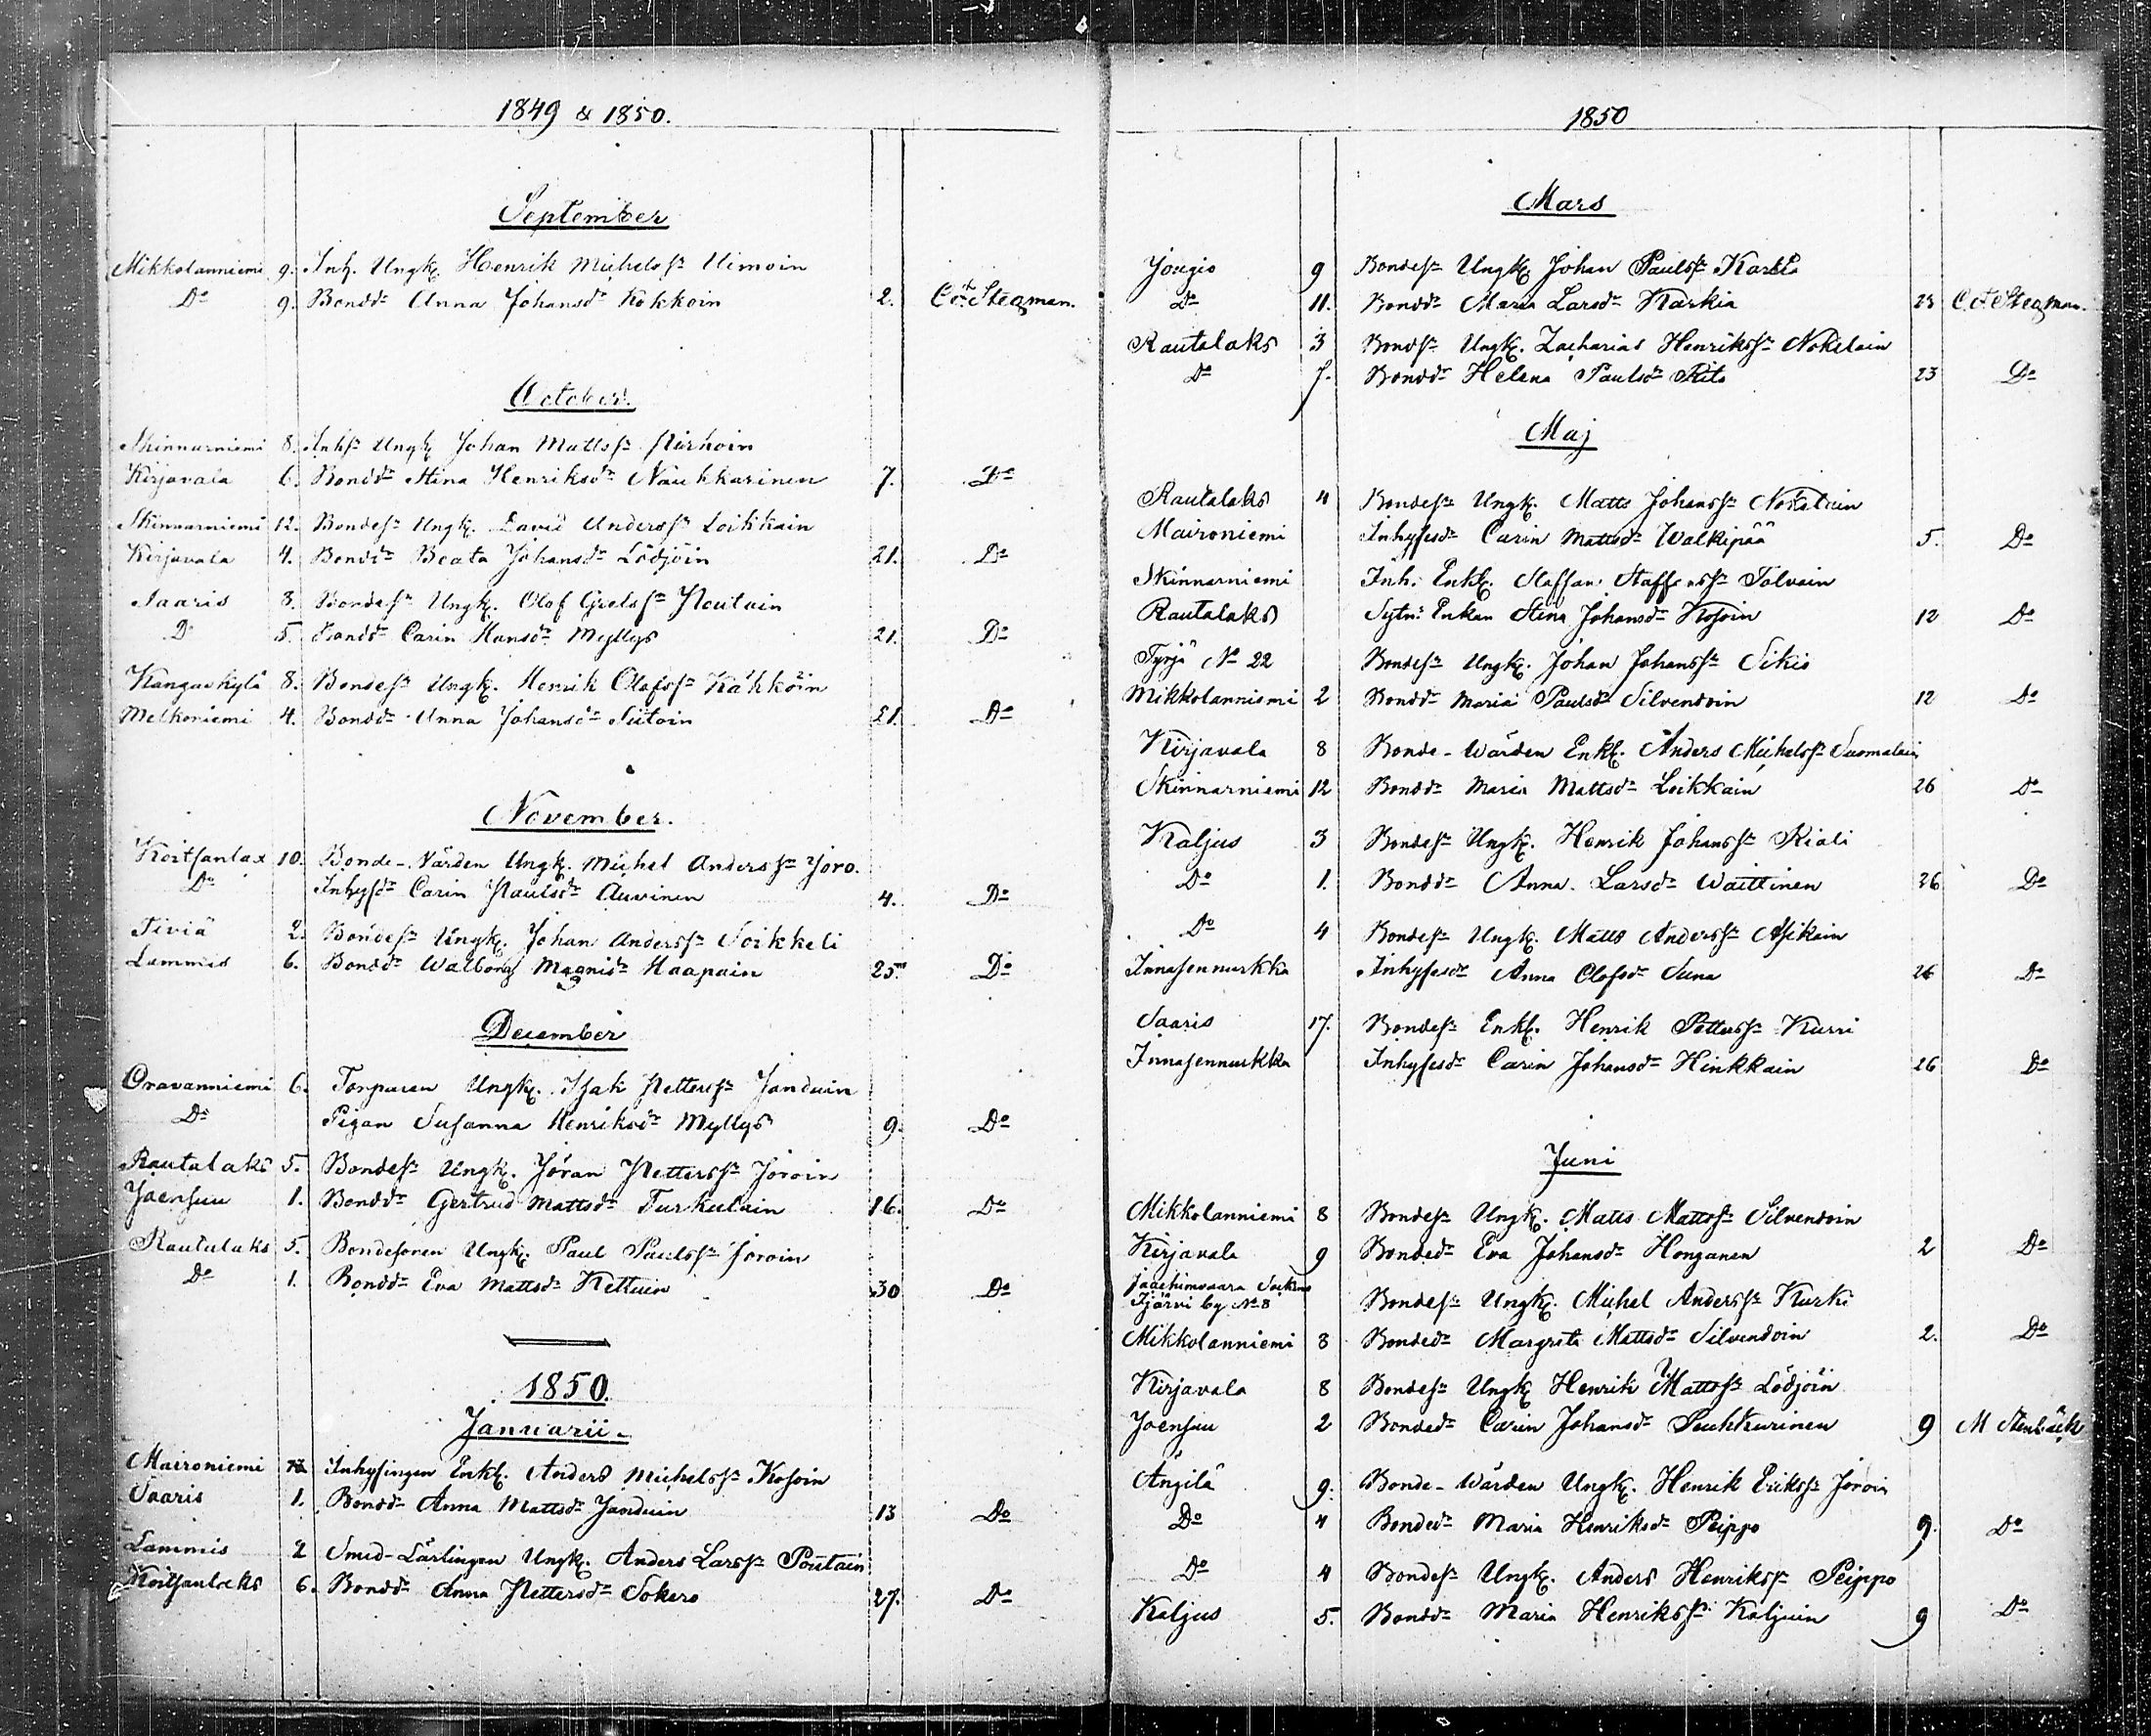 1849 & 1850.
September
Mikkolanniemi 9. Inh. Ungk. Henrik Michelss:n Uimoin
D:o 9. Bondd:r Anna Johansd:r Kokkoin 2. C. F. Stegman.
October.
Skinnarniemi 8. Inhs:n Ungk. Johan Mattss:n Pirhoin
Kirjavala 6. Bondd:r Stina Henriksd:r Naukkarinen 7. D:o
Skinnarniemi 12. Bondes:n Ungk. David Anderss:n Loikkain
Kirjavala 4. Bondd:r Beata Johansd:r Lödjöin 21. D:o
Saaris 8. Bondes:n Ungk. Olof Grelss:n Poutain
D:o 5. Bondd:r Carin Hansd:r Myllys 21. D:o
Kangaskylä 8. Bondes:n Ungk. Henrik Olofss:n Kähköin
Melkoniemi 4. Bondd:r Anna Johansd:r Siitoin 21. D:o
November.
Koitsanlax 10. Bonde-Vården Ungk. Michel Anderss:n Joro.
D:o Inhysd:r Carin Paulsd:r Auvinen 4. D:o
Tiviä 2. Bondes:n Ungk. Johan Anderss:n Soikkeli
Lammis 6. Bondd:r Walborg Magnisd:r Haapain 25. D:o
December
Oravanniemi 6. Torparen Ungk. Isak Petterss:n Janduin
D:o Pigan Susanna Henriksd:r Myllys 9. D:o
Rautalaks 5. Bondes:n Ungk. Jöran Petterss:n Joroin
Joensuu 1. Bondd:r Gertrud Mattsd:r Turkulain 16. D:o
Rautalaks 5. Bondesonen Ungk. Paul Paulss:n Joroin
D:o 1. Bondd:r Eva Mattsd:r Kettuin 30 D:o
1850.
Januarii.
Maironiemi Inhysingen Enkl. Anders Michelss:n Kosoin
Saaris 1. Bondd:r Anna Mattsd:r Janduin 13 D:o
Lammis 2 Smid-Lärlingen Ungk. Anders Larss:n Poutain
Koitsanlaks 6. Bondd:r Anna Pettersd:r Sokero 27. D:o
1850
Mars
Jougio 9 Bondes:n Ungk. Johan Paulss:n Karkia
D:o 11. Bondd:r Maria Larsd:r Karkia 23 C. F. Stegman.
Rautalaks 3 Bonds:n Ungk. Zacharias Henrikss:n Nokelain
D:o 7. Bondd:r Helena Paulsd:r Rito 23 D:o
Maj
Rautalaks 4 Bondes:n Ungk. Matts Johanss:n Nokelain
Maironiemi Inhysesd:r Carin Mattsd:r Walkipää 5. D:o
Skinnarniemi Inh. Enkl. Staffan Staffanss:n Tolvain
Rautalaks Sytn: Enkan Stina Johansd:r Kosoin 12 D:o
Tyrjä N:o 22 Bondes:n Ungk. Johan Johanss:n Sikio
Mikkolanniemi 2 Bondd:r Maria Paulsd:r Silvendoin 12 D:o
Kirjavala 8 Bonde-Wården Enkl. Anders Michelss:n Suomalain
Skinnarniemi 12 Bondd:r Maria Mattsd:r Loikkain 26 D:o
Kaljus 3 Bondes:n Ungk. Henrik Johanss:n Riali
D:o 1. Bondd:r Anna Larsd:r Waittinen 26 D:o
D:o 4 Bondes:n Ungk. Matts Anderss:n Asikain
Innasennurkka Inhysesd:r Anna Olofsd:r Suna 26 D:o
Saaris 17. Bondes:n Enkl. Henrik Petterss:n Kurri
Innasennurkka Inhysesd:r Carin Johansd:r Hinkkain 26 D:o
Juni
Mikkolanniemi 8 Bondes:n Ungk. Matts Mattss:n Silvendoin
Kirjavala 9 Bonded:r Eva Johansd:r Honganen 2 D:o
Joachimvaara Socken
Tjärvi by N:o 8 Bondes:n Ungk. Michel Anderss:n Kurki
Mikkolanniemi 8 Bonded:r Margreta Mattsd:r Silvendoin 2. D:o
Kirjavala 8 Bondes:n Ungk. Henrik Mattss:n Lödjöin
Joensuu 2 Bonded:r Carin Johansd:r 9 M Stenbäck
Ängilä 9. Bonde-Wården Ungk. Henrik Erikss:n Joroin
D:o 4 Bonded:r Maria Henriksd:r Peippo 9. D:o
D:o 4 Bondes:n Ungk. Anders Henrikss:n Peippo
Kaljus 5. Bondd:r Maria Henrikss:n Kaljuin 9 D:o